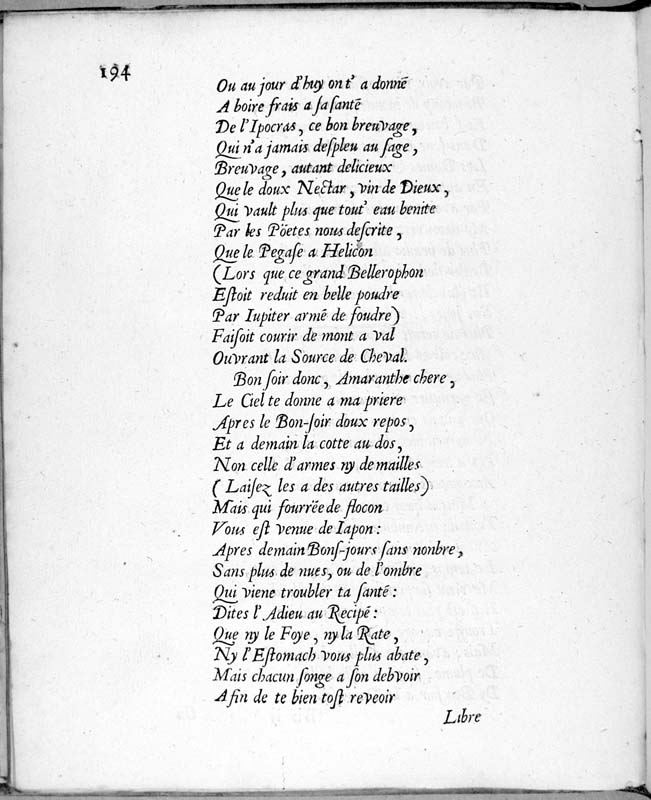 194
Ou au jour d'huy ont' a donné
A boire frais a ſa ſanté
De l'Ipocras, ce bon breuvage,
Qui n'a jamais deſpleu au ſage,
Breuvage, autant delicieux
Que le doux Nectar, vin de Dieux,
Qui vault plus que tout' eau benite
Par les Pöetes nous deſcrite,
Que le Pegaſe a Helicon
(Lors que ce grand Bellerophon
Eſtoit reduit en belle poudre
Par Iupiter armé de foudre)
Faiſoit courir de mont a val
Ouvrant la Source de Cheval.
Bon ſoir donc, Amaranthe chere,
Le Ciel te donne a ma priere
Apres le Bon-ſoir doux repos,
Et a demain la cotte au dos,
Non celle d'armes ny de mailles
(Laiſez les a des autres tailles)
Mais qui fourrëe de flocon
Vous eſt venue de Iapon:
Apres demain Bonſ-jours ſans nonbre,
Sans plus de nues, ou de l'ombre
Qui viene troubler ta ſanté:
Dites l'Adieu au Recipé:
Que ny le Foye, ny la Rate,
Ny l'Eſtomach vous plus abate,
Mais chacun ſonge a ſon debvoir
Afin de te bien toſt reveoir
Libre